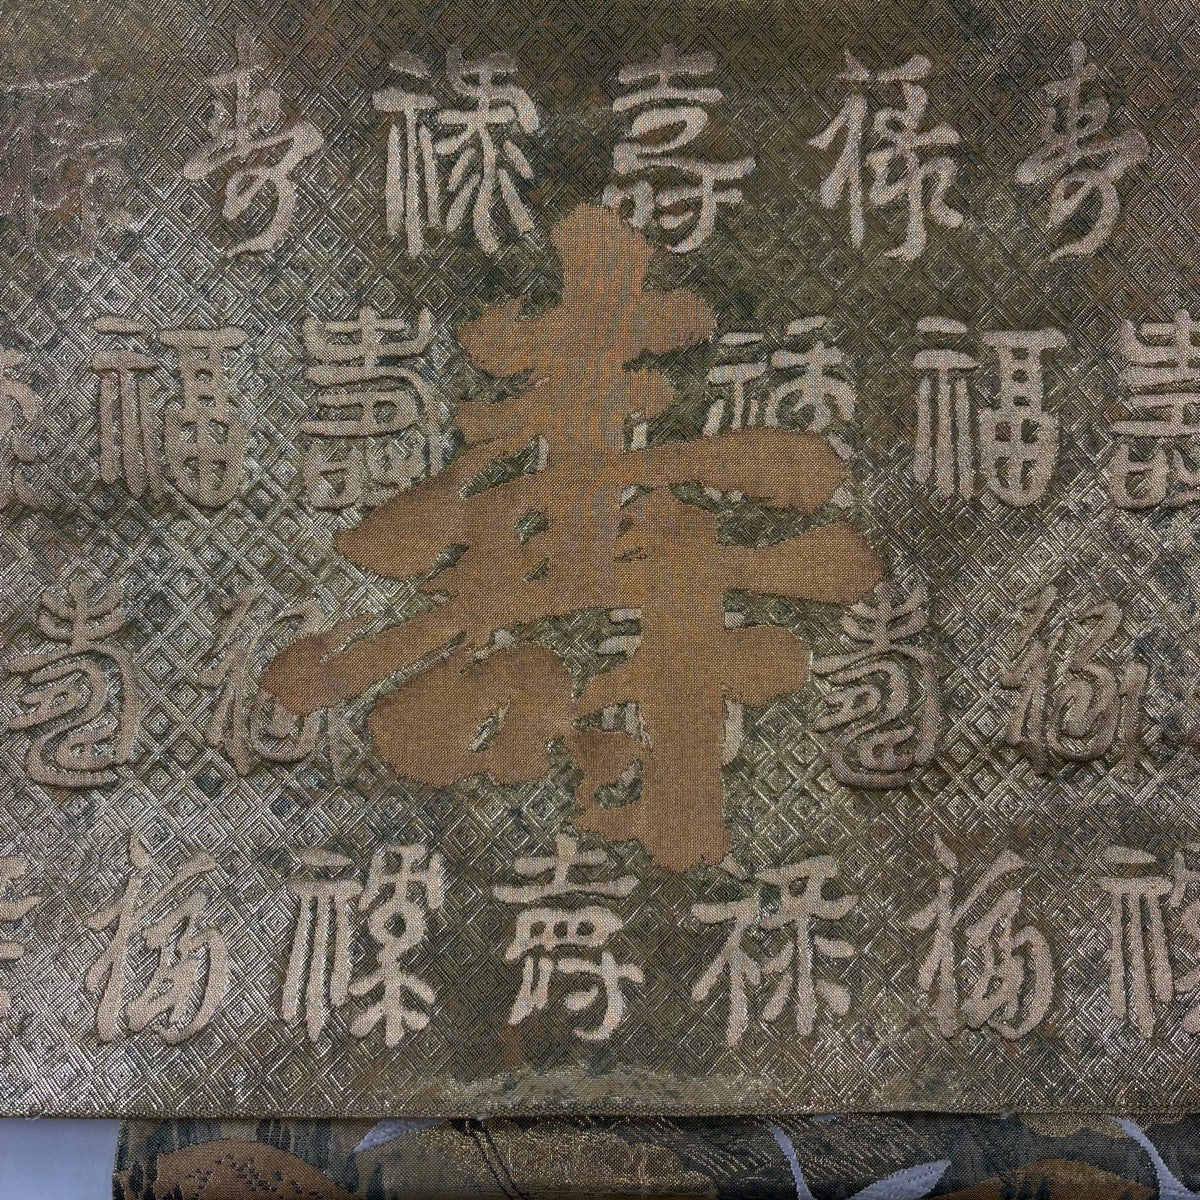 壽祿壽祿壽
福壽祿福壽
壽
壽福壽福
福祿壽祿福祿